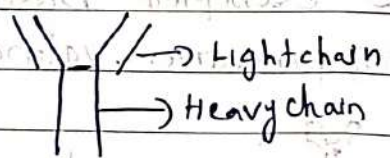 Lightchain
Heavy chain